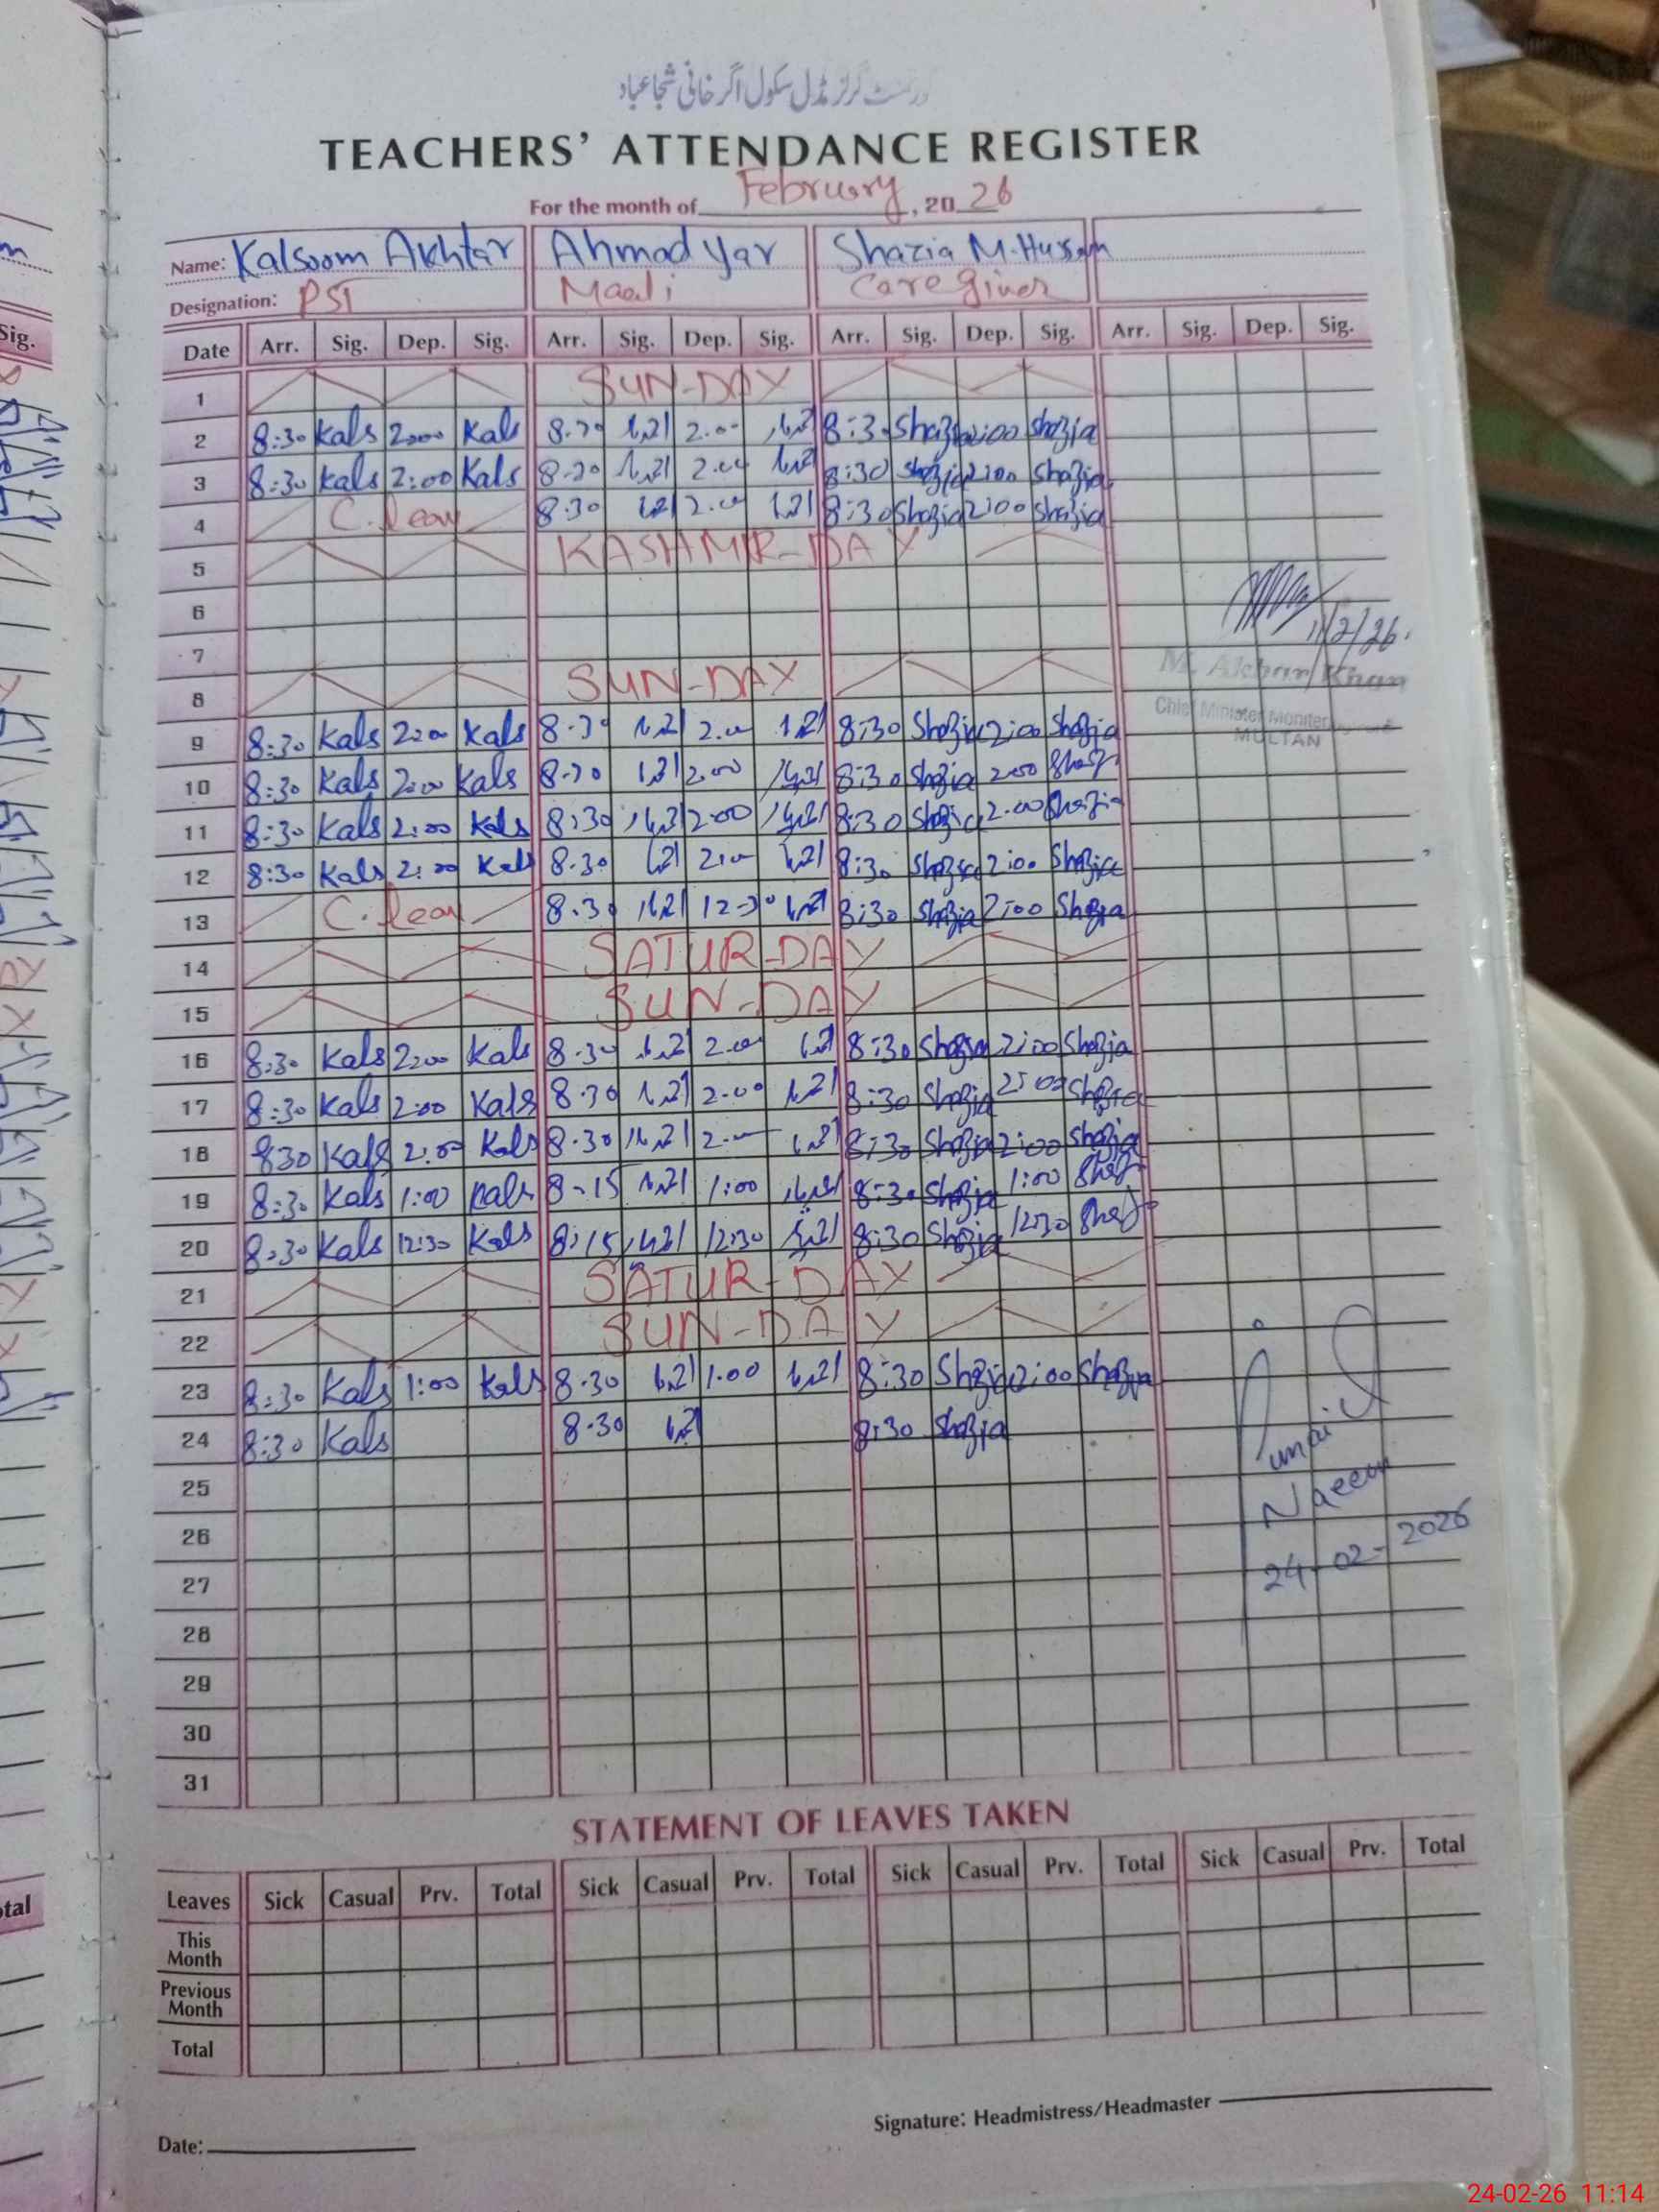 گورنمنٹ گرلز مڈل سکول اگر خانی شجاعباد
TEACHERS' ATTENDANCE REGISTER
For the month of February, 2026
Name: Kalsoom Akhtar Ahmad Yar Shazia M.Hussain
Designation: PST Maali Care Giver
Date Arr. Sig. Dep. Sig. Arr. Sig. Dep. Sig. Arr. Sig. Dep. Sig. Arr. Sig. Dep. Sig.
1 SUN-DAY
2 8:30 Kals 2:00 Kals 8.30 2.00 8:30 Shazia 2:00 Shazia
3 8:30 Kals 2:00 Kals 8.30 2.00 8:30 Shazia 2:00 Shazia
4 C.leav 8.30 2.00 8:30 Shazia 2:00 Shazia
5 KASHMIR-DAY
6
7
8 SUN-DAY
9 8:30 Kals 2:00 Kals 8.30 2.00 8:30 Shazia 2:00 Shazia
10 8:30 Kals 2:00 Kals 8.30 2.00 8:30 Shazia 2:00 Shaz
11 8:30 Kals 2:00 Kals 8:30 2:00 8:30 Shazia 2.00 Shazia
12 8:30 Kals 2:00 Kals 8.30 2:00 8:30 Shazia 2:00 Shazia
13 C.leav 8.30 12:30 8:30 Shazia 2:00 Shazia
14 SATUR-DAY
15 SUN-DAY
16 8:30 Kals 2:00 Kals 8.30 2.00 8:30 Shazia 2:00 Shazia
17 8:30 Kals 2:00 Kals 8.30 2.00 8:30 Shazia 2:00 Shazia
18 8:30 Kals 2:00 Kals 8.30 2.00 8:30 Shazia 2:00 Shazia
19 8:30 Kals 1:00 Kals 8.15 1:00 8:30 Shazia 1:00 Shaz
20 8:30 Kals 12:30 Kals 8:15 12:30 8:30 Shazia 12:30 Shaz
21 SATUR-DAY
22 SUN-DAY
23 8:30 Kals 1:00 Kals 8.30 1.00 8:30 Shazia 2:00 Shazia
24 8:30 Kals 8.30 8:30 Shazia
25
26
27
28
29
30
31
11/2/26.
M. Akbar Khan
Chief Minister Moniter
MULTAN
Junaid
Naeem
24-02-2026
STATEMENT OF LEAVES TAKEN
Leaves Sick Casual Prv. Total Sick Casual Prv. Total Sick Casual Prv. Total Sick Casual Prv. Total
This Month
Previous Month
Total
Signature: Headmistress/Headmaster
Date:
Sig.
24-02-26 11:14